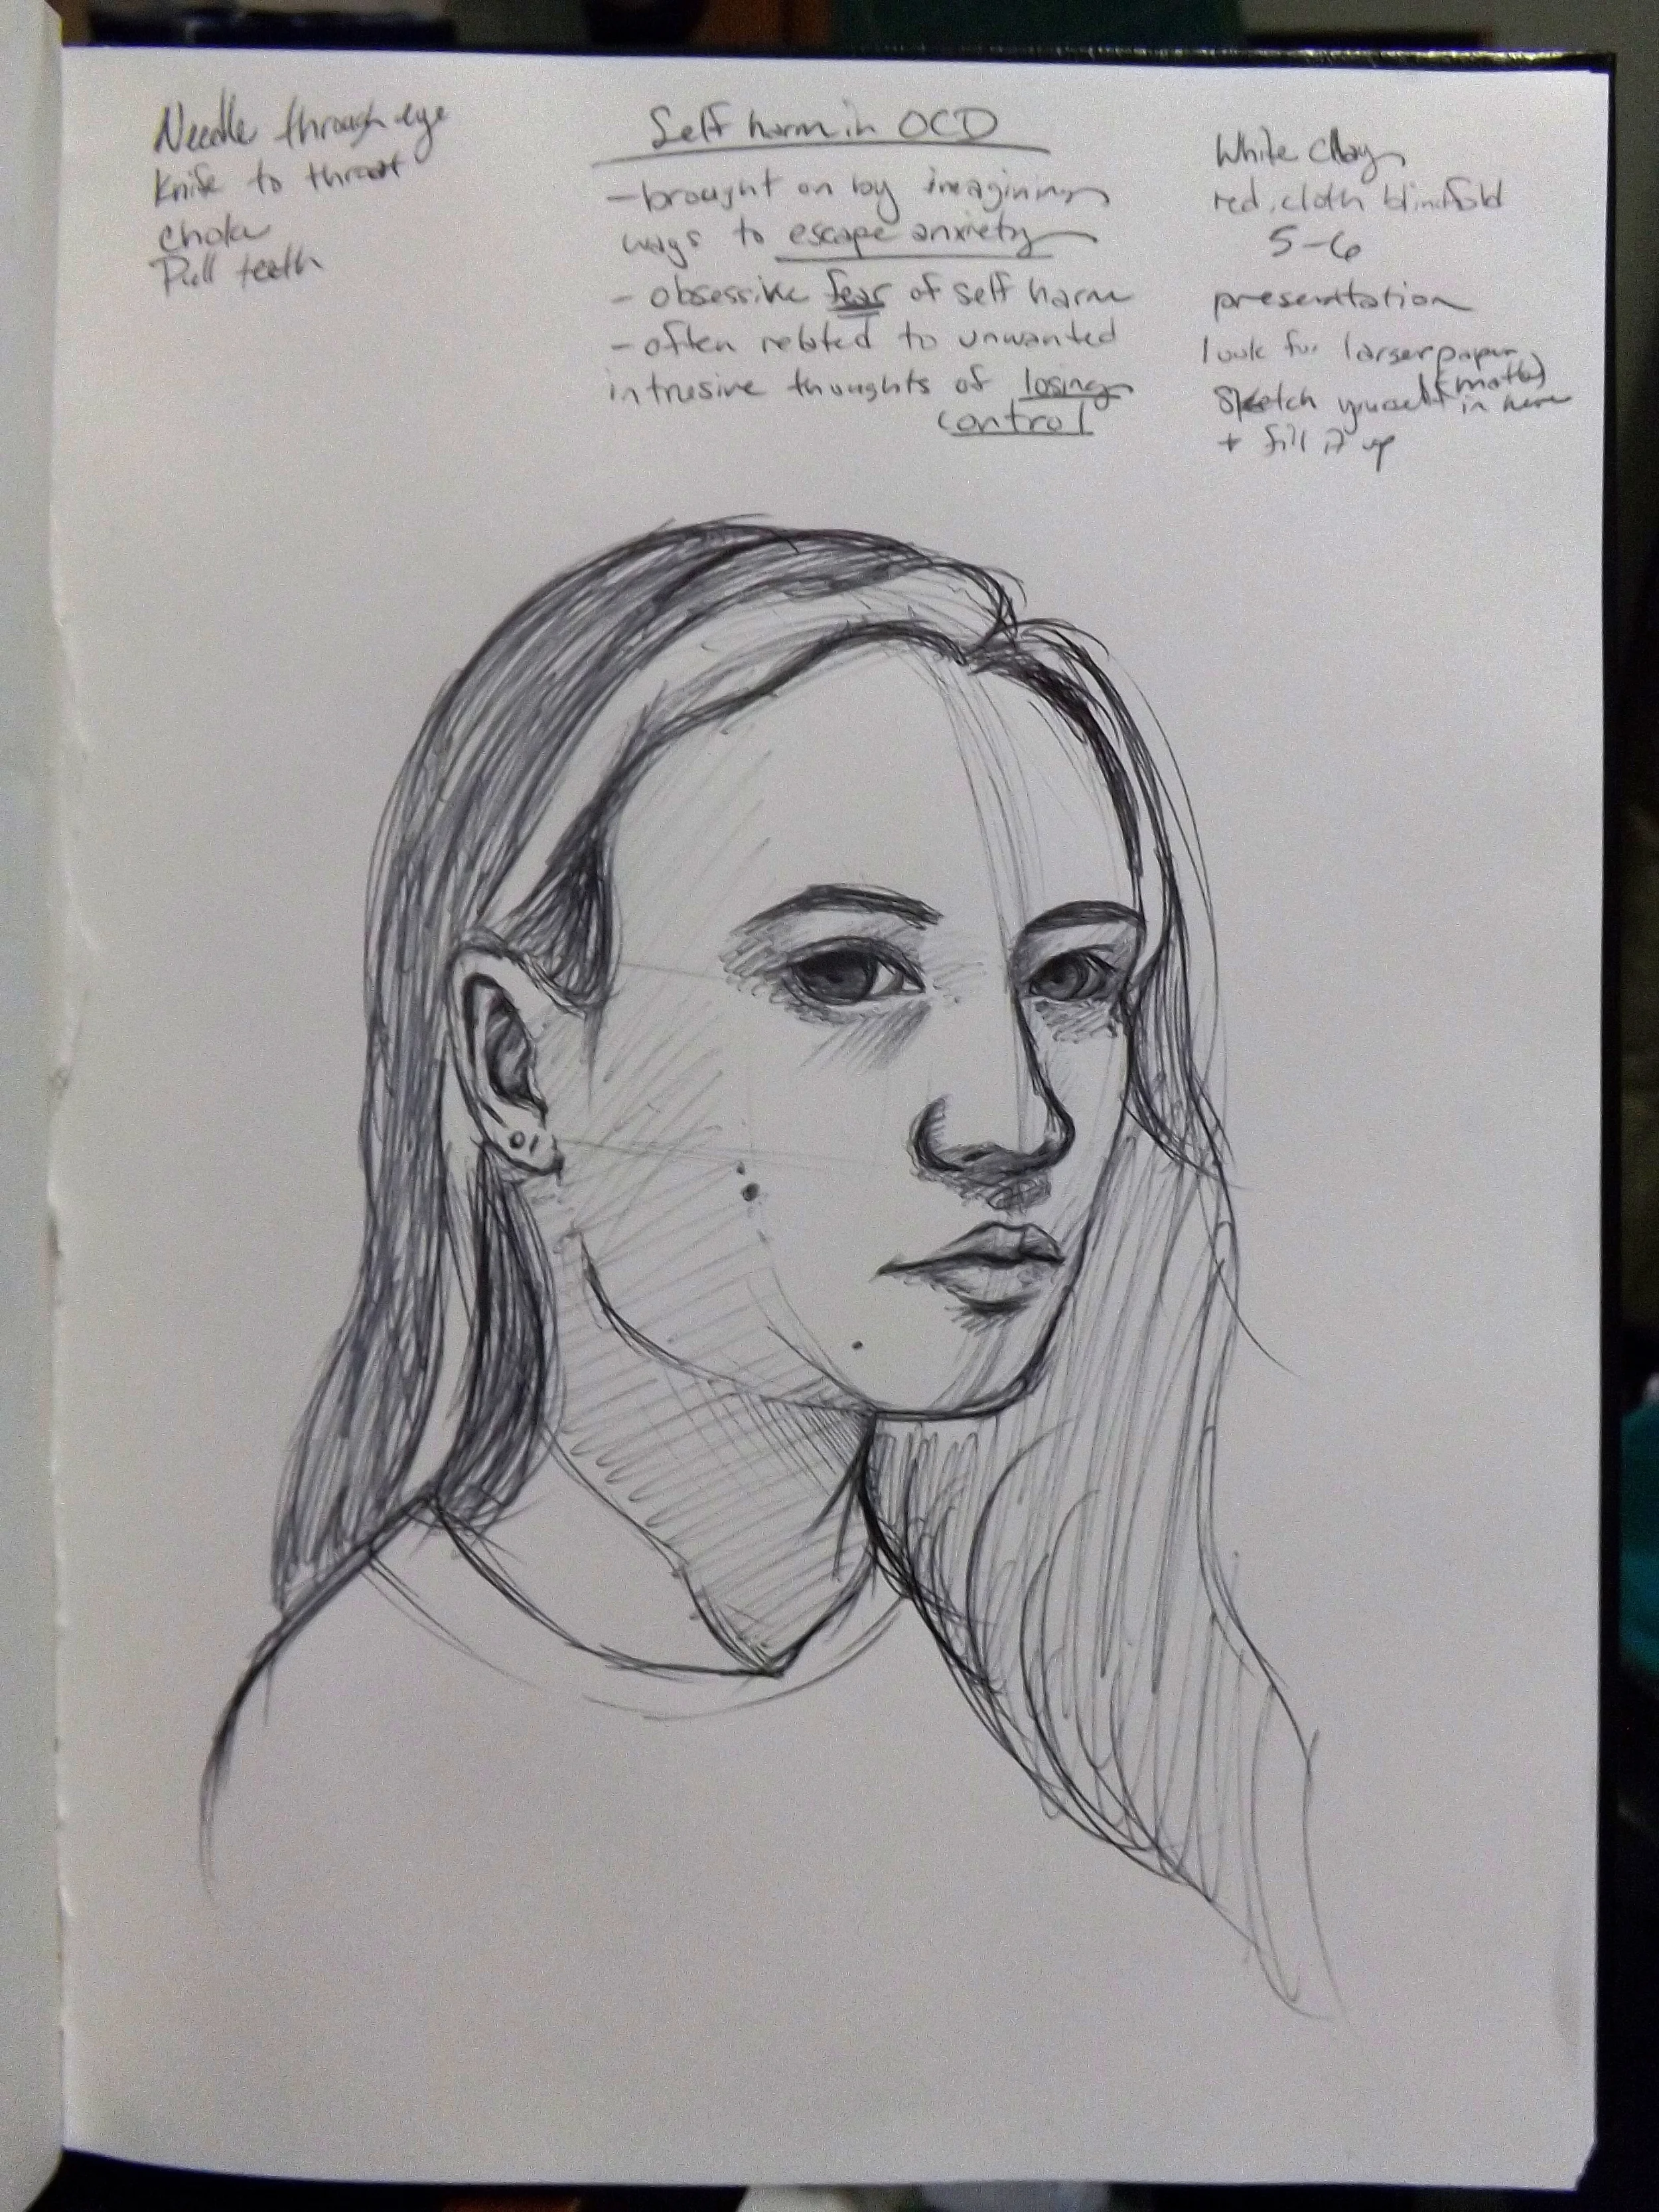 Needle through eye
Knife to throat
choke
Pull teeth
Self harm in OCD
- brought on by imagining
ways to escape anxiety
- obsessive fear of self harm
- often related to unwanted
intrusive thoughts of losing
control
White Clay
red cloth blindfold
5-6
presentation
look for larger paper
(matte)
Sketch yourself in here
+ fill it up